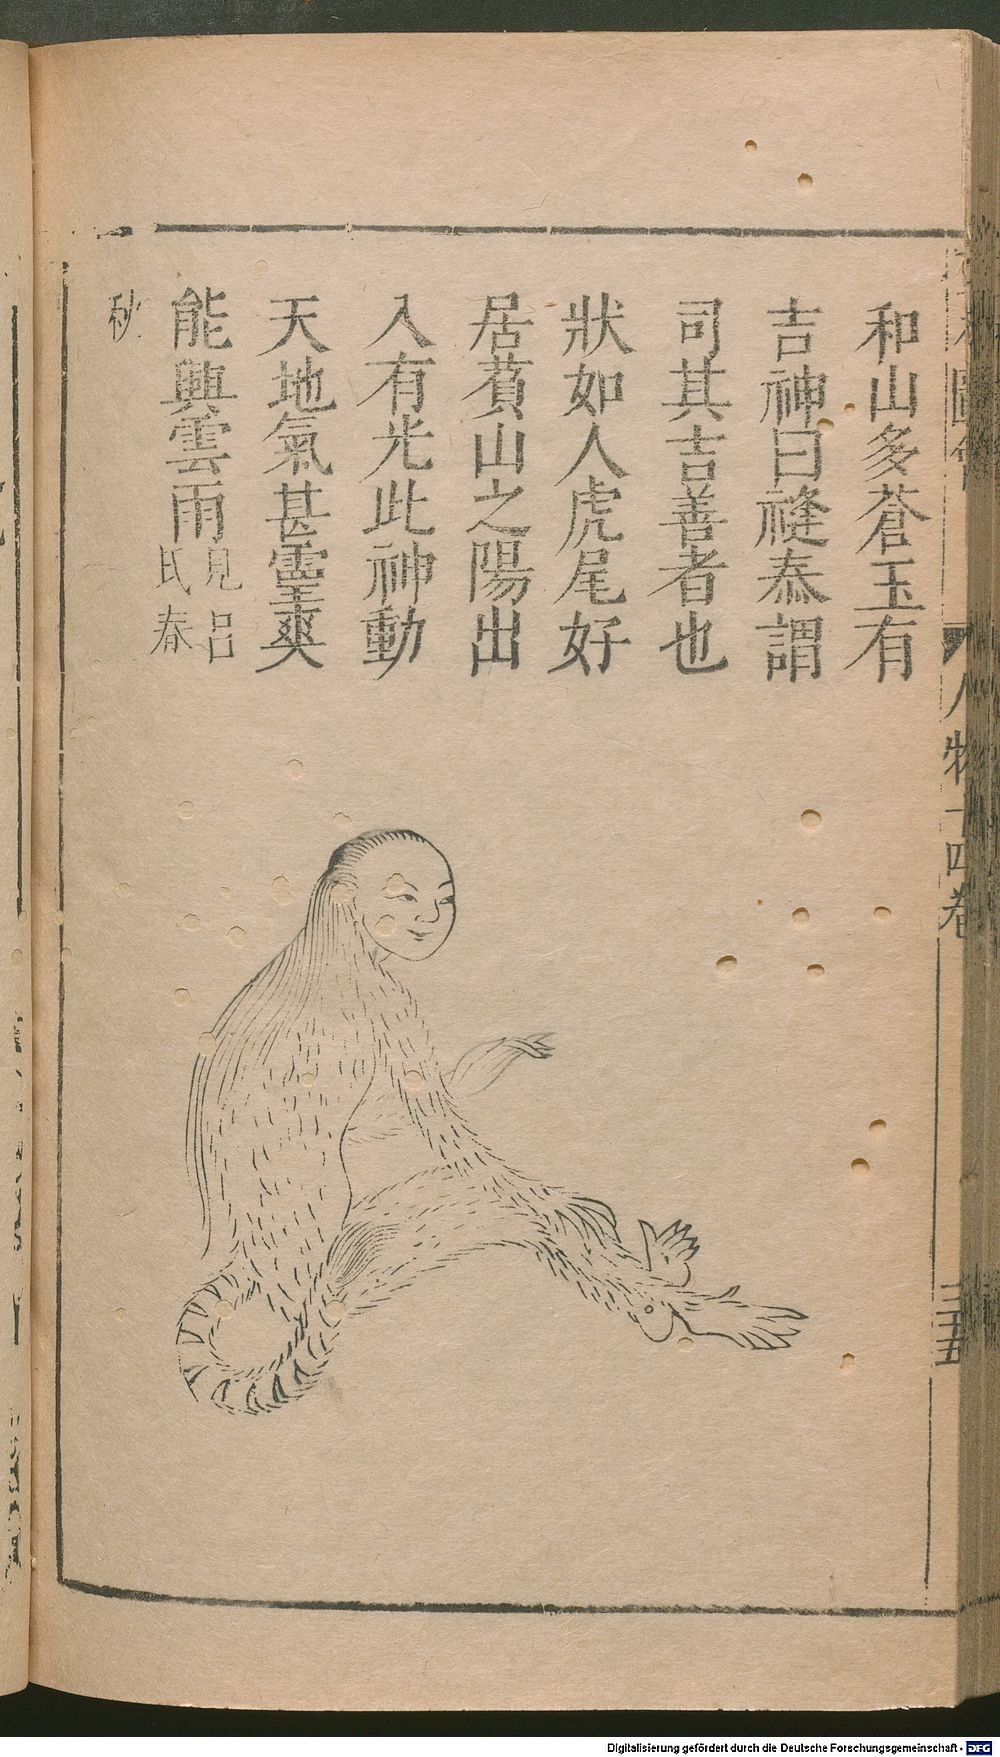 和山多蒼玉有
吉神曰䄌泰謂
司其吉善者也
狀如人虎尾好
居萯山之陽出
入有光此神動
天地氣甚靈爽
能興雲雨見呂
氏春
秋
人物十四卷
三十五
Digitalisierung gefördert durch die Deutsche Forschungsgemeinschaft - DFG